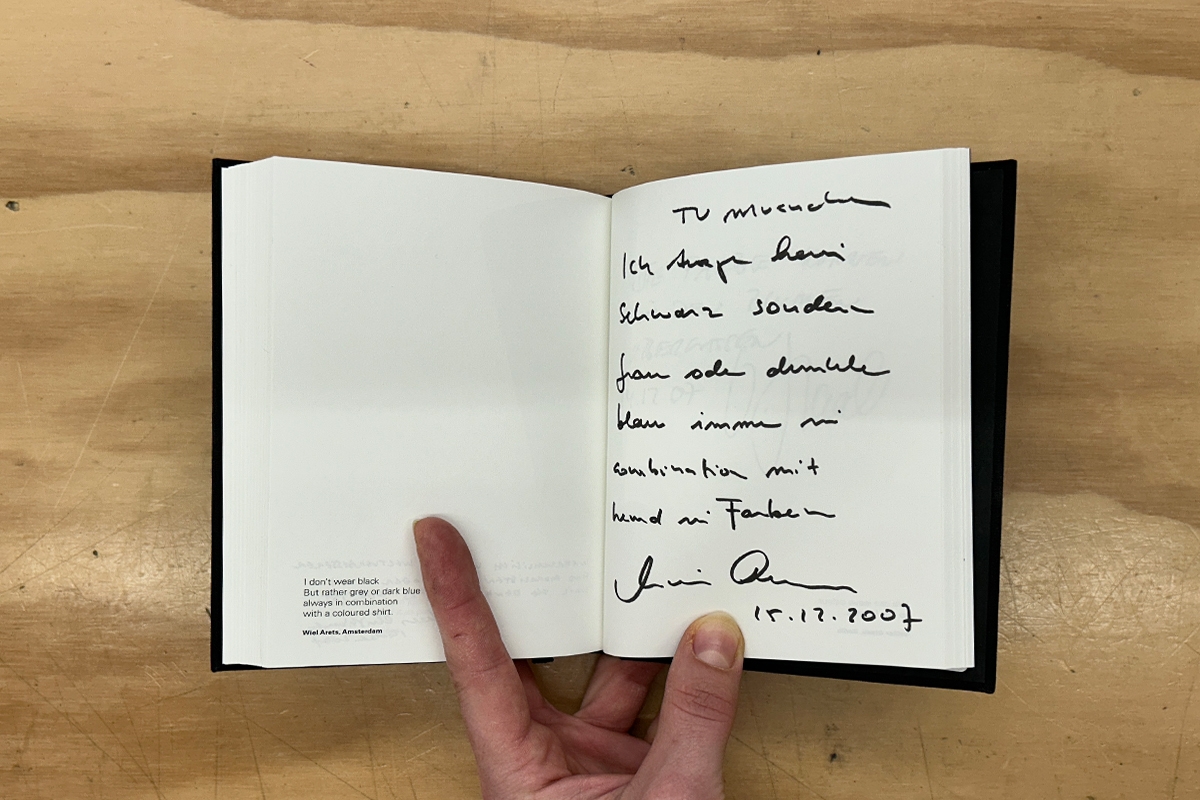 I don't wear black
But rather grey or dark blue
always in combination
with a coloured shirt.
Wiel Arets, Amsterdam
TU Muenchen
Ich trage kein
Schwarz sondern
grau oder dunkle
blau immer in
combination mit
hemd in Farben
15.12.2007